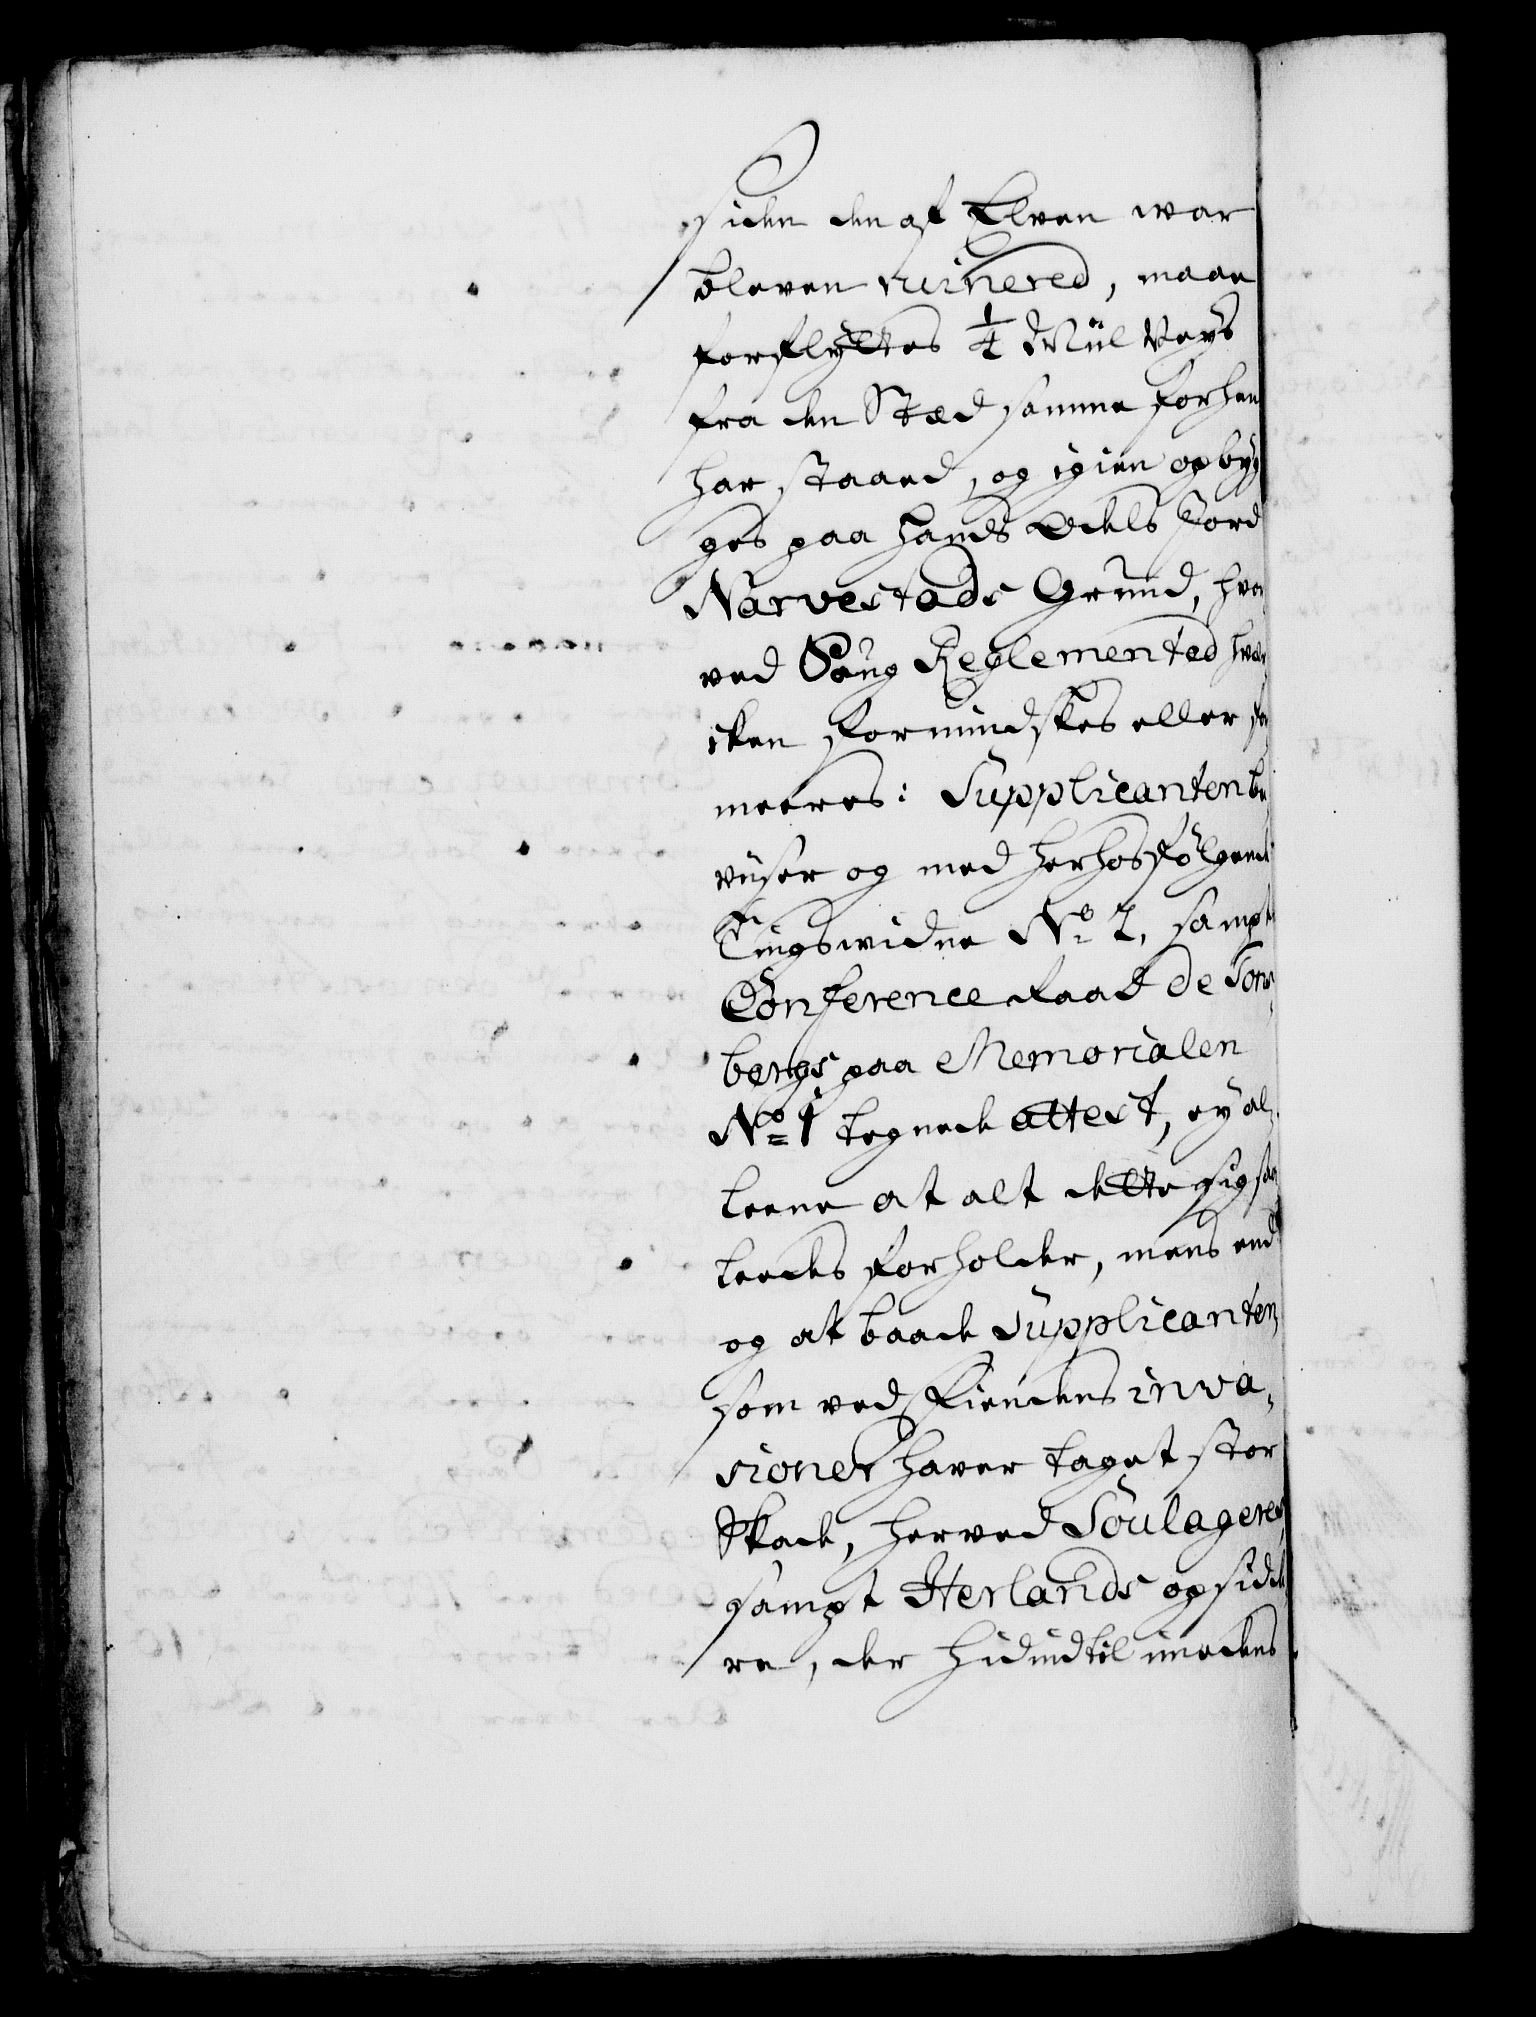 siden den af Elven war
bleven ruinered, maae
forflÿttes 1/4 Miil Veÿs
fra den Stæd samme forhen
har staaed, og igien opbÿg
ges paa hands Odels Jord
Narvestads Grund, hvor
ved Saug Reglemented hver
cken formindskes eller for
meeres: Supplicanten be
viiser og med herhosfölgende
Tingswidne No 2, sampt
Conference Raad de Tons
bergs paa Memorialen
No 1 tegnede attest, eÿ al,
leene at alt dette sig saa
leedes forholder, mens end
og at baade Supplicanten,
som ved Fiendens inva,
sioner haver taget stor
Skade, herved Soulageres,
sampt Herlands opsidde
re, der hidindtil imedens